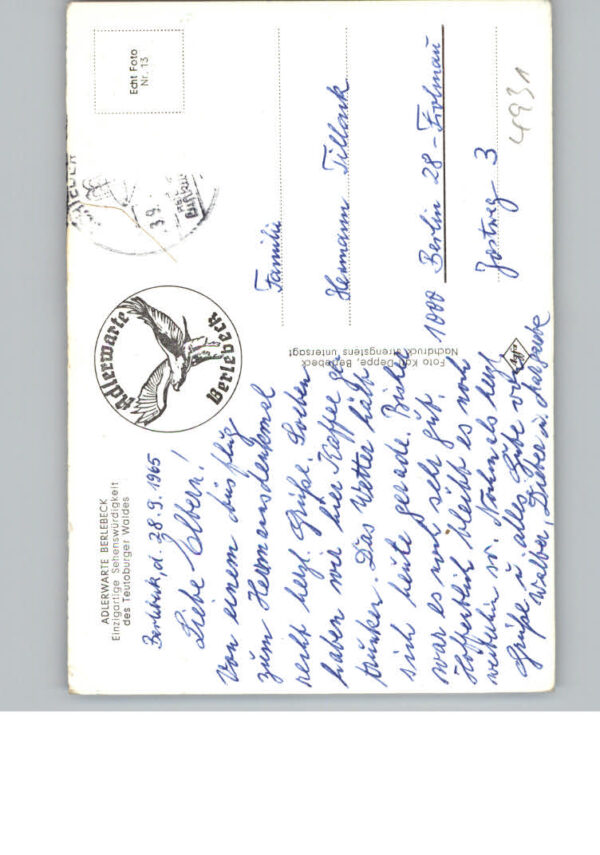 ADLERWARTE BERLEBECK
Einzigartige Sehenswürdigkeit
des Teutoburger Waldes
Berlebeck, d. 28.9.1965
Liebe Eltern!
Von einem Ausflug
zum Hermannsdenkmal
recht herzl. Grüße. Soeben
haben wir hier Kaffee ge
trunken. Das Wetter hält
sich heute gerade. Bisher
war es noch sehr gut.
Hoffentlich bleibt es noch
weiterhin so. Nochmals herzl
Grüße u. alles Gute von
Walter, Dieter u.
Adlerwarte
Berlebeck
Foto Karl Deppe, Berlebeck
Nachdruck strengstens untersagt
Agfa
Echt Foto
Nr. 13
Familie
Hermann Tillack
1000 Berlin 28-Frohnau
Jostweg 3
4931